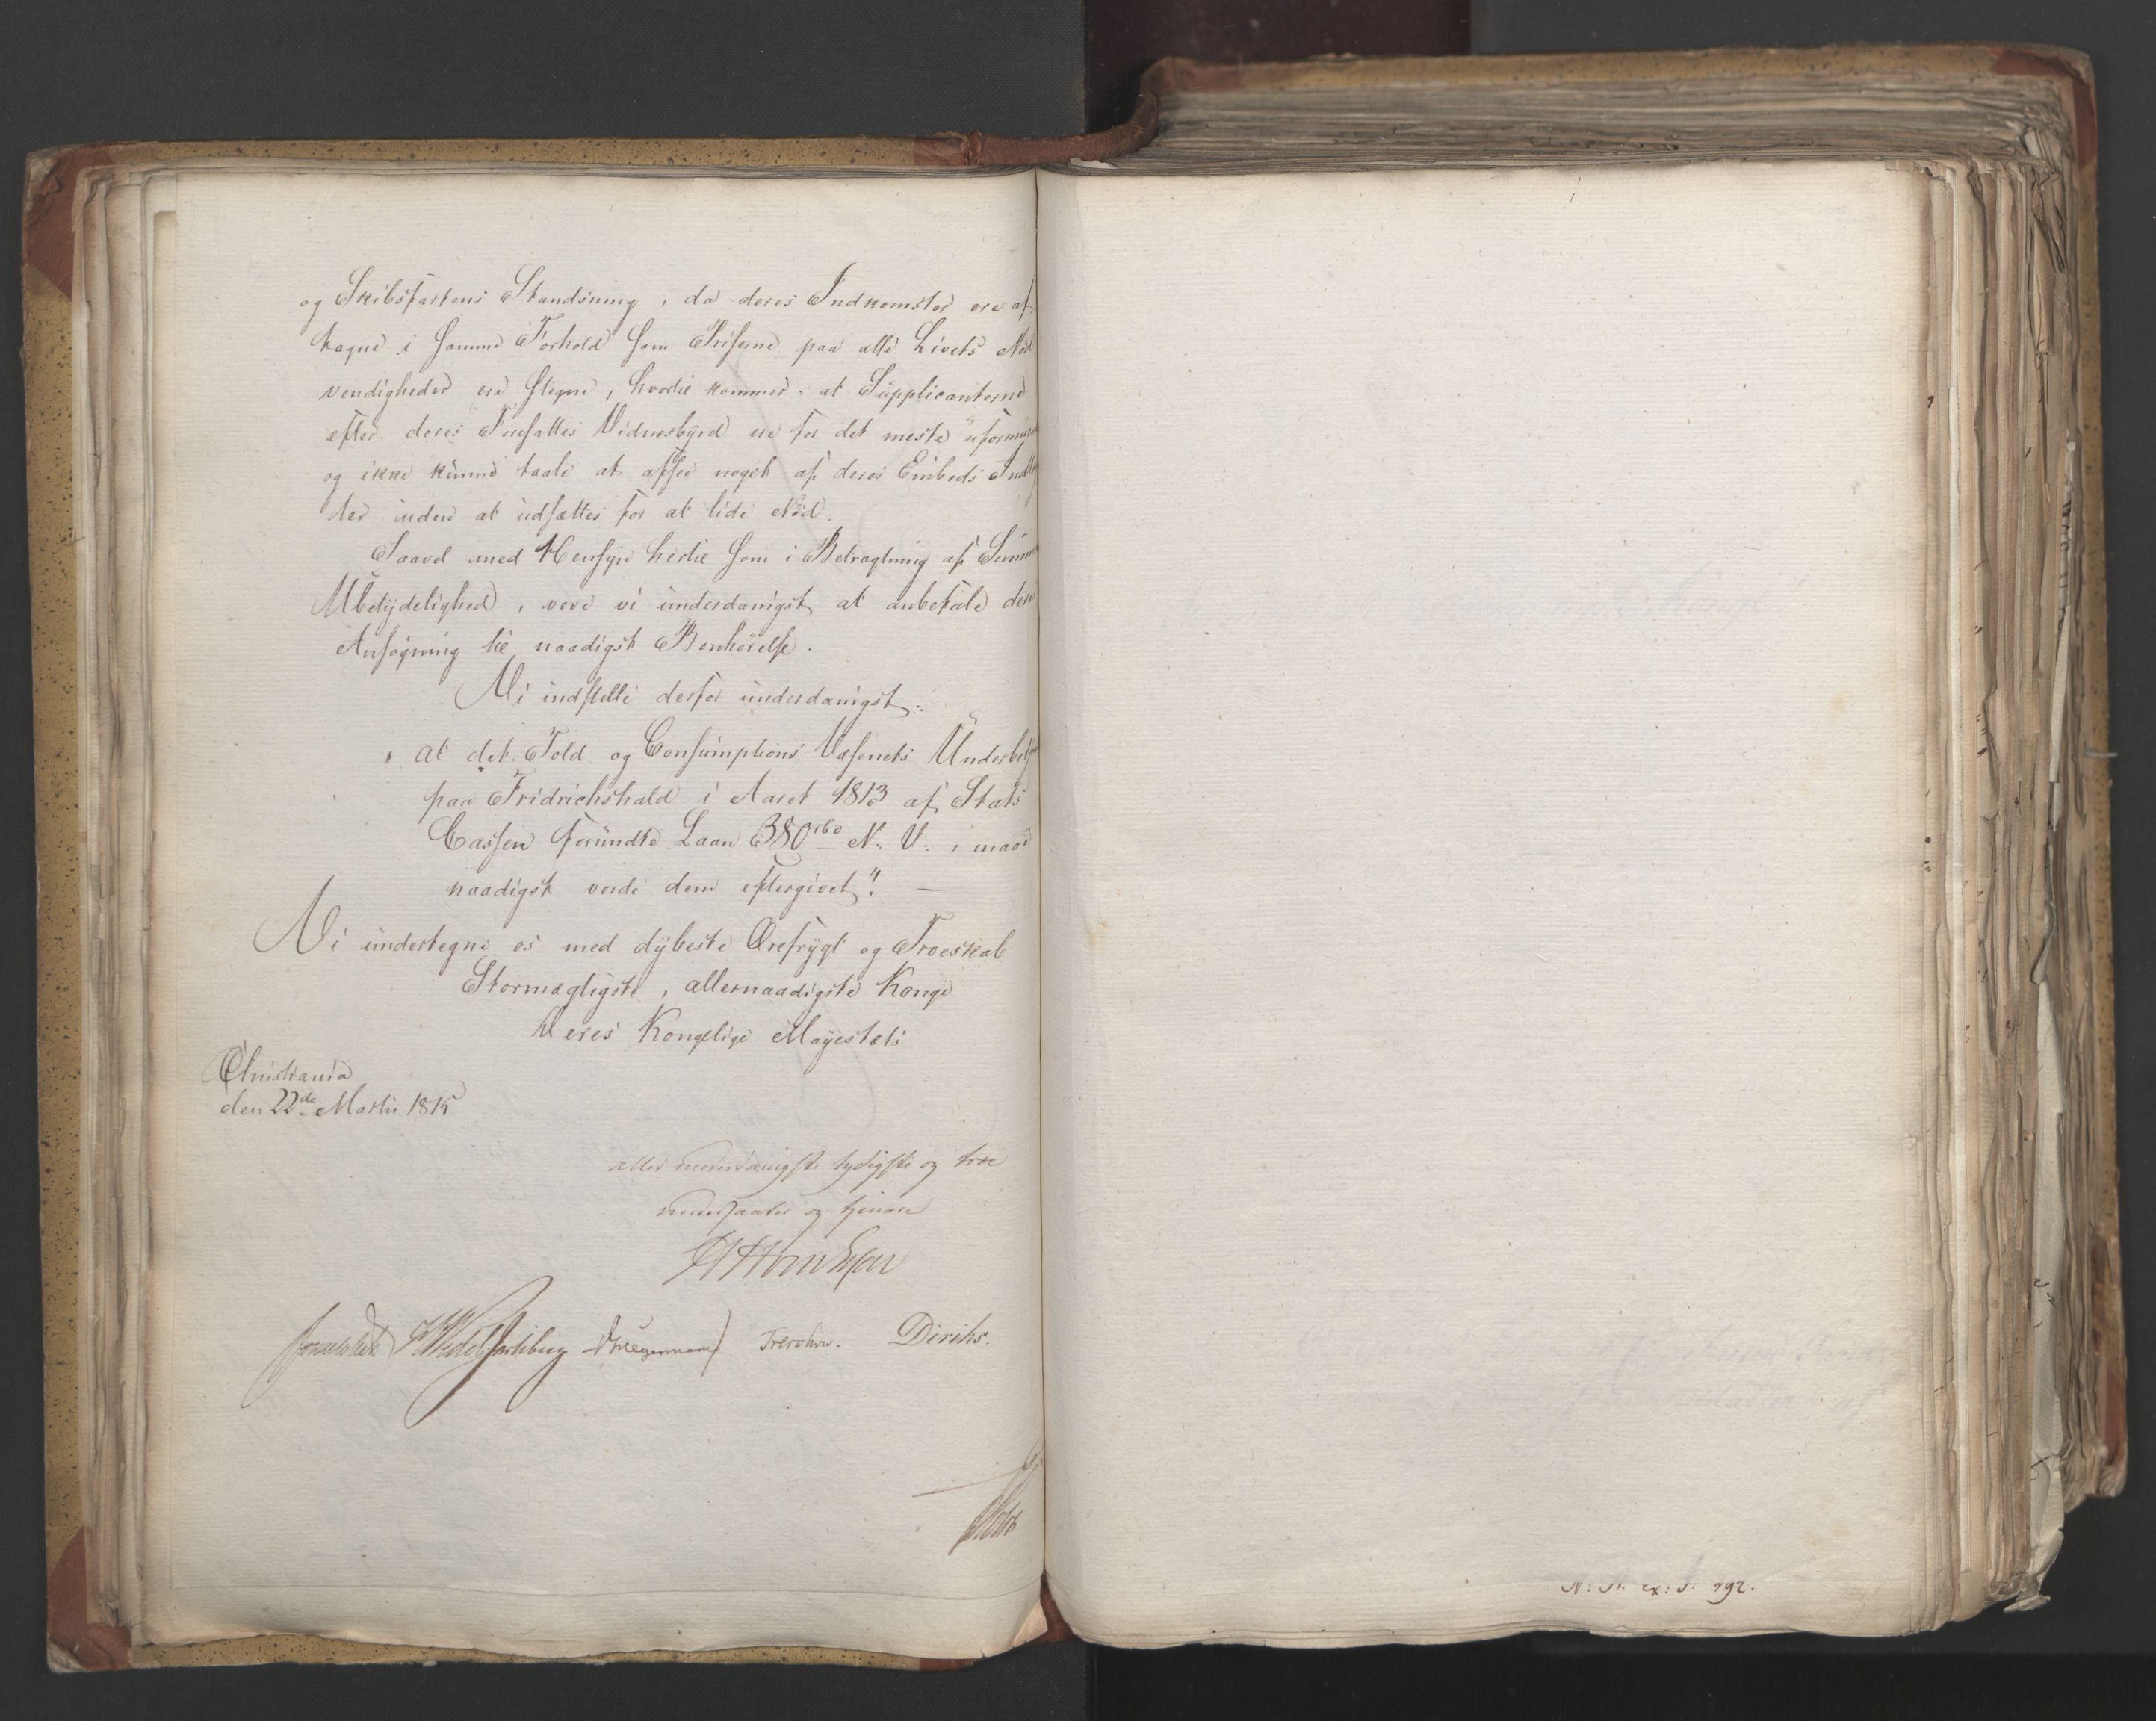 og Skibsfartens Standsning, da deres Indkomster ere af
tagne i samme Forhold som Priserne paa alle Livets Nød
vendigheder ere stegne, hvortil kommer: at Supplicanterne
efter deres Foresattes Vidnesbyrd ere for det meste uformu
og ikke kunne taale at afsee noget af deres Embeds Ind
ter uden at udsættes for at lide Nød.
Saavel med Hensyn hertil som i Betragtning af Summ
Ubetydelighed, vove vi underdanigst at anbefale denne
Ansøgning til naadigst Bønhørelse.
Vi indstille derfor underdanigst:
" at det Told og Consumptions Væsenets Underbetj
paa Fridrichshald i Aaret 1813 af Stats
Cassen forundte Laan 380 rbd N: V:, maae
naadigst vorde dem eftergivet". —
Vi undertegne os med dybeste Ærefrygt og Troeskab
Stormægtigste, allernaadigste Konge
Deres Kongelige Mayestæts
Christiania
den 22de Martii 1815
allerunderdanigste lydigste og troe
undersaatter og tjenere
Sommerhielm Wedel Jarlsberg Hegermann Treschow. Diriks.
N: St: ex: S: 792.